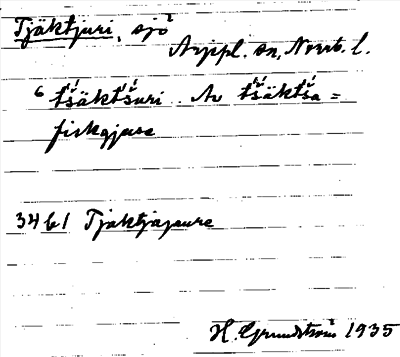 Tjäktjuri, sjö
Arjepl. sn, Norrb. l.
6 tšäktšuri. Av tšäktša =
fiskgjuse
34 b 1 Tjäktjajaure
H. Grundström 1935